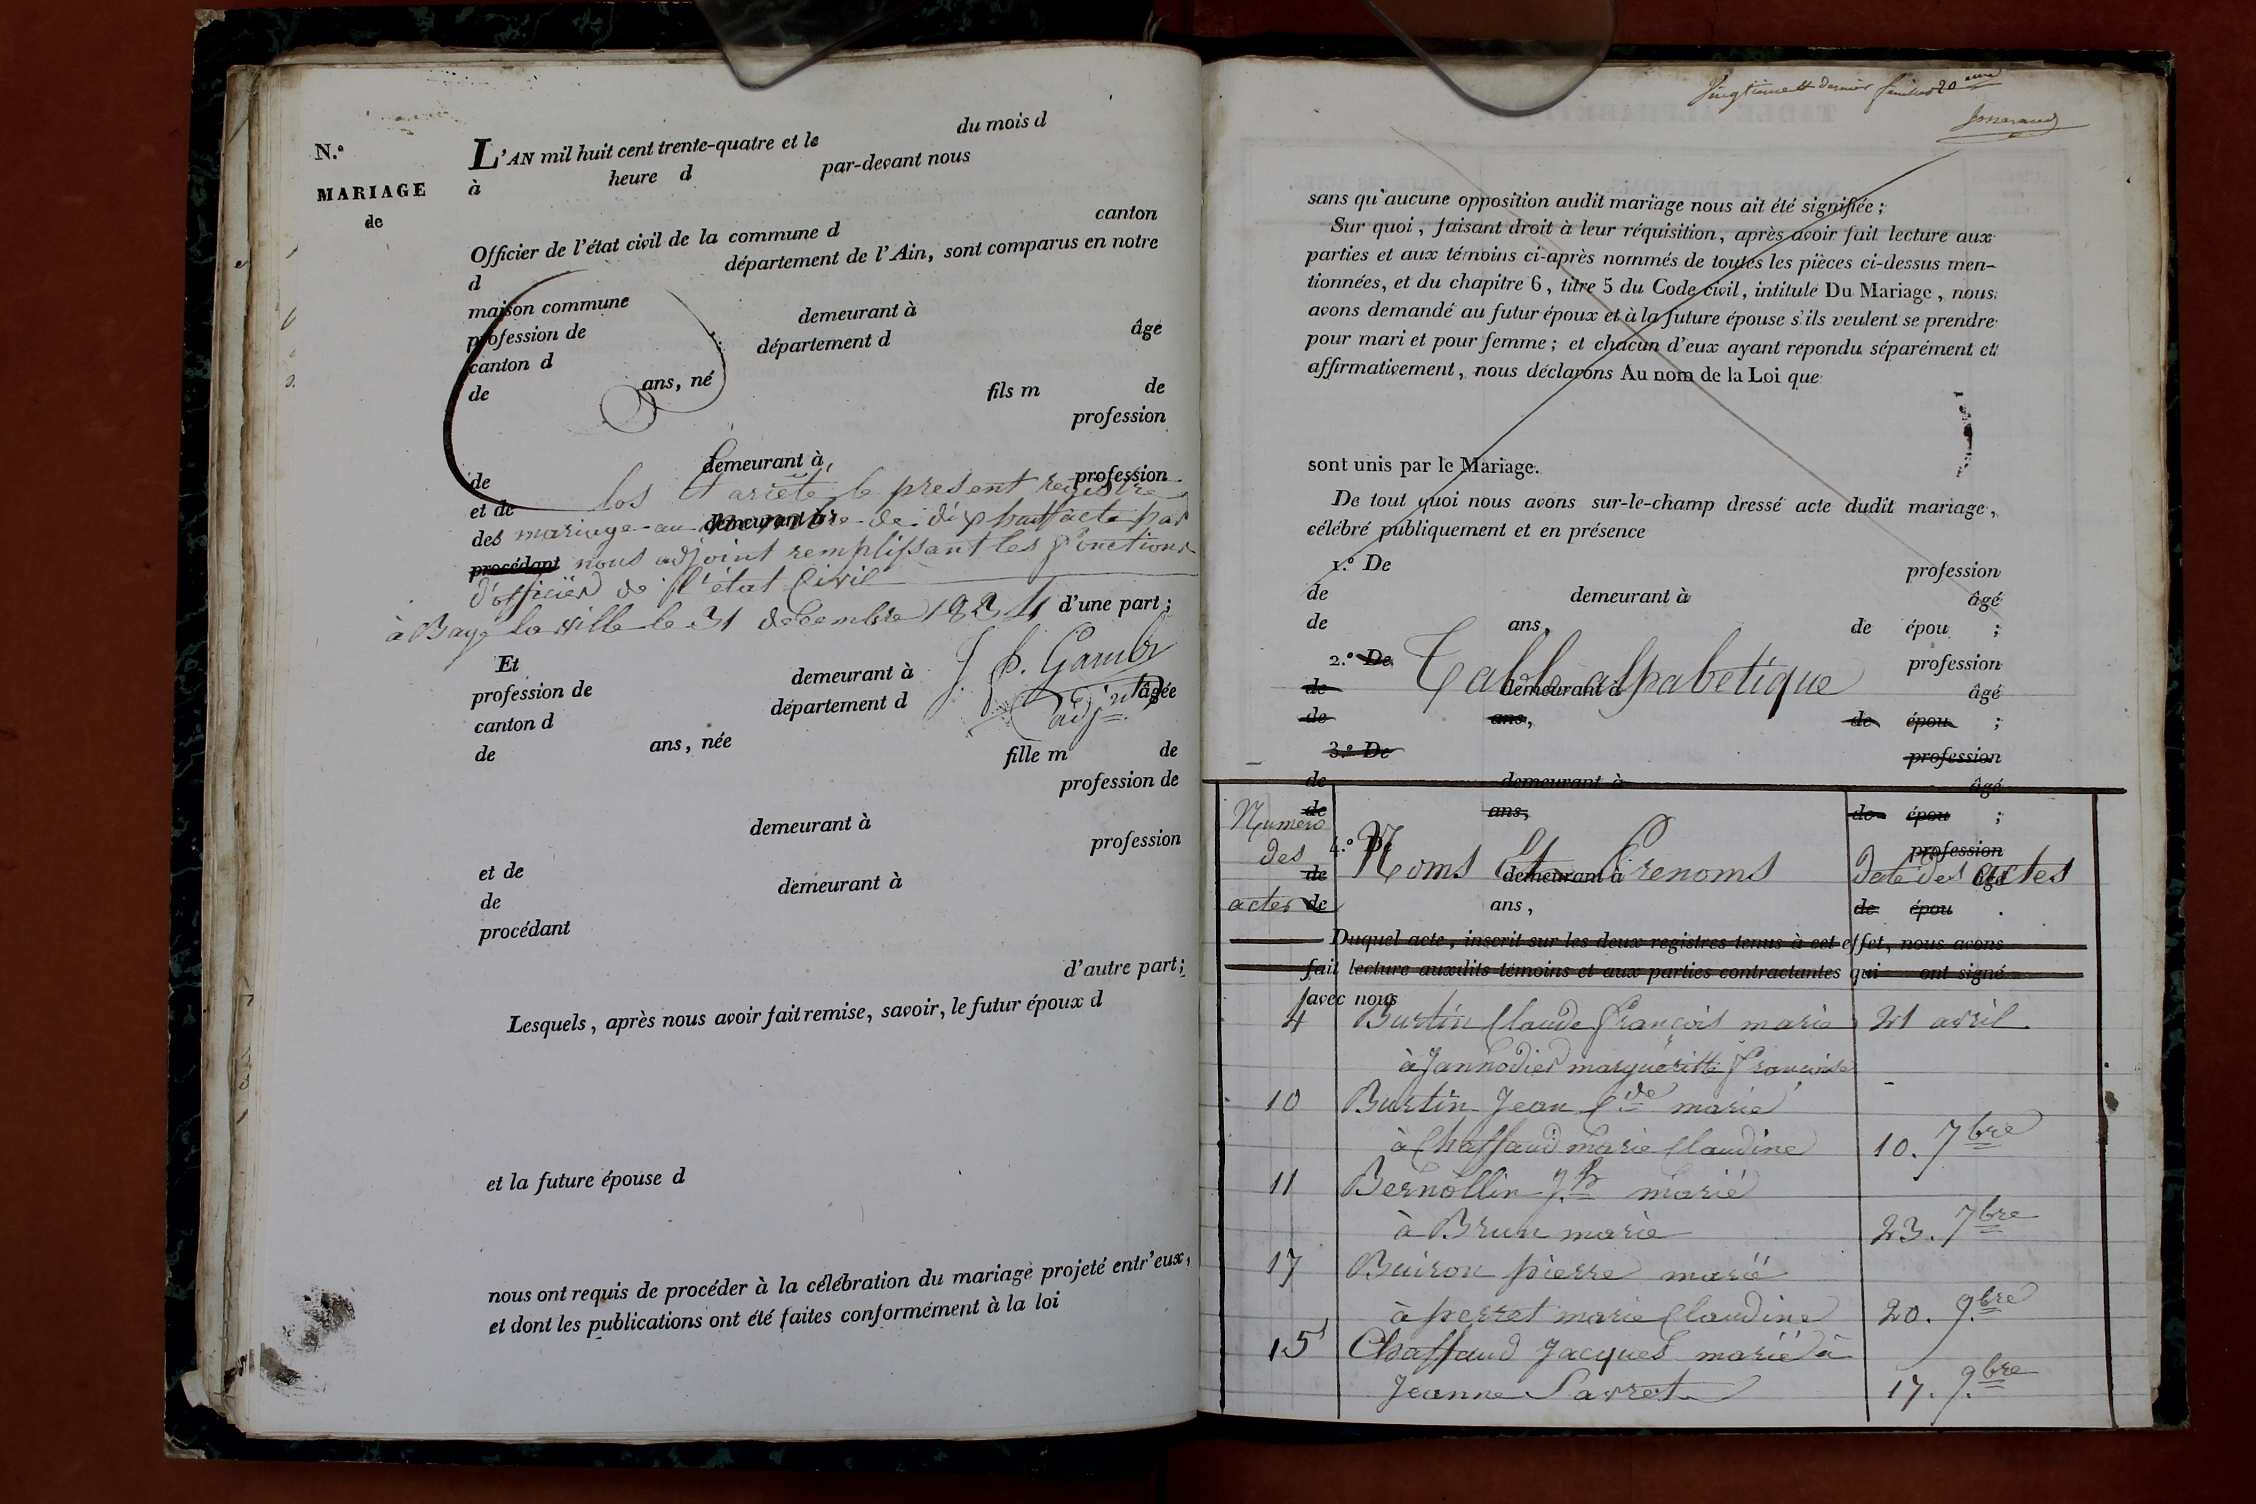 N.º
MARIAGE
de
L'AN mil huit cent trente-quatre et le du mois d
à heure d par-devant nous
Officier de l'état civil de la commune d canton
d département de l'Ain, sont comparus en notre
maison commune
profession de demeurant à
canton d département d âgé
de ans, né fils m de
profession
de demeurant à
et de profession
Clos Et arrêté le présent registre
demeurant à
des mariage au nombre de dix huit acte par
procédant nous adjoint remplissant les fonctions
d'officier de l'état Civil
à Bagé la ville le 31 decembre 1834 d'une part;
Et
profession de demeurant à
canton d département d âgée
J. B.
adj.nt
de ans, née fille m de
profession de
demeurant à
et de profession
de demeurant à
procédant
d'autre part;
Lesquels, après nous avoir fait remise, savoir, le futur époux d
et la future épouse d
nous ont requis de procéder à la célébration du mariage projeté entr'eux,
et dont les publications ont été faites conformément à la loi
Vingtieme et dernier feuillet 20 eme
sans qu'aucune opposition audit mariage nous ait été signifiée;
Sur quoi, faisant droit à leur réquisition, après avoir fait lecture aux
parties et aux témoins ci-après nommés de toutes les pièces ci-dessus men-
tionnées, et du chapitre 6, titre 5 du Code civil, intitulé Du Mariage, nous
avons demandé au futur époux et à la future épouse s'ils veulent se prendre
pour mari et pour femme; et chacun d'eux ayant répondu séparément et
affirmativement, nous déclarons Au nom de la Loi que
sont unis par le Mariage.
De tout quoi nous avons sur-le-champ dressé acte dudit mariage,
célébré publiquement et en présence
1.º De profession
de demeurant à âgé
de ans, de épou ;
2.º De profession
Table alpabetique
de demeurant à âgé
de ans, de épou ;
3.º De profession
de demeurant à âgé
de ans, de épou ;
4.º De profession
de demeurant à âgé
de ans, de épou .
Numero des actes Noms Et Prenoms Date des actes
Duquel acte, inscrit sur les deux registres tenus à cet effet, nous avons
fait lecture auxdits témoins et aux parties contractantes qui ont signé
avec nous
4 Burtin Claude François marié 21 avril.
à Jannodier margueritte Francoise
10 Burtin Jean C.de marié
à Chaffaud marie Claudine 10. 7bre
11 Bernollin J.ph marié
à Brun marie 23. 7bre
17 Buiron pierre marié
à perret marie Claudine 20. 9.bre
15 Chaffaud Jacques marié à
Jeanne Savret 17. 9.bre